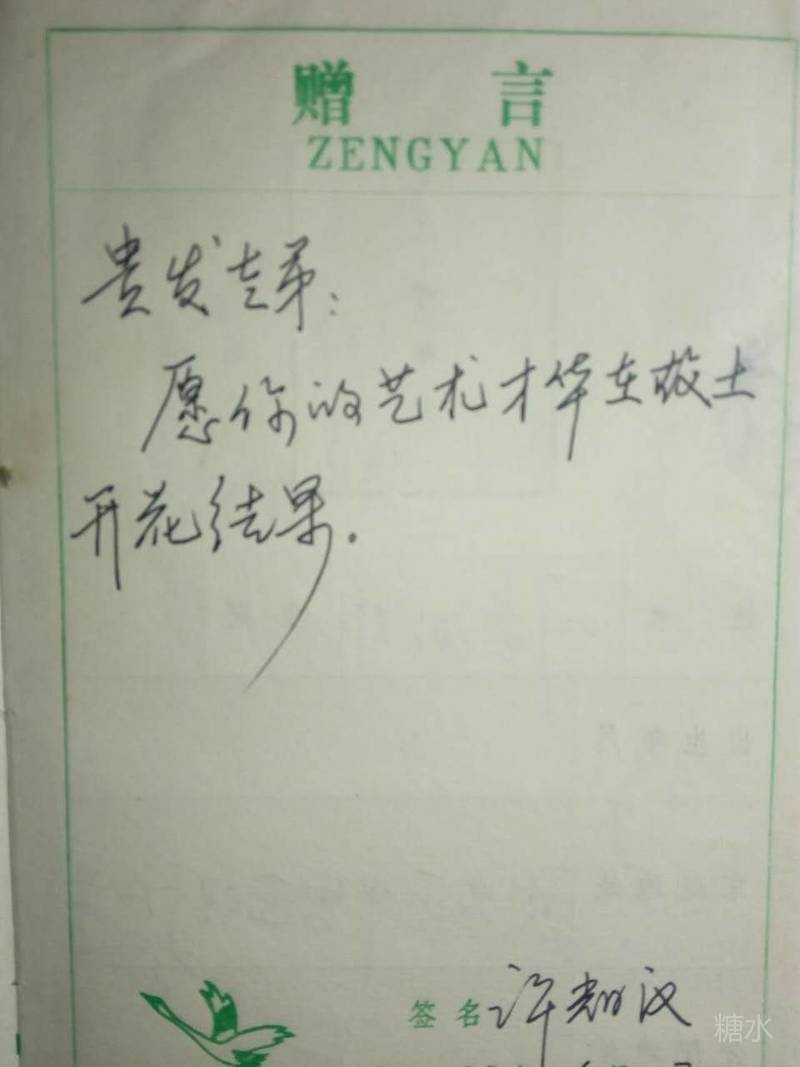 赠言
ZENGYAN
贵发老弟：
愿你的艺术才华在故土
开花结果。
签名 许
糖水